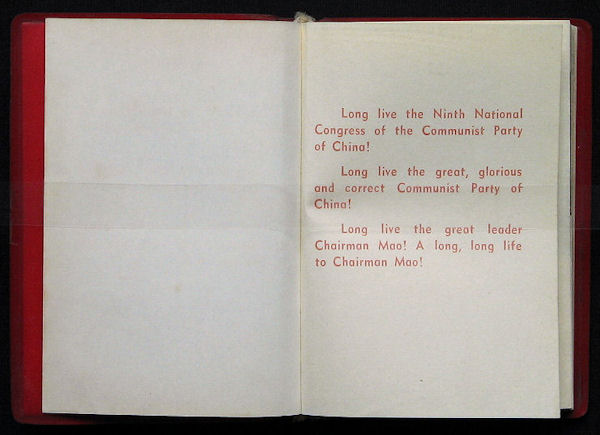 Long live the Ninth National
Congress of the Communist Party
of China!
Long live the great, glorious
and correct Communist Party of
China!
Long live the great leader
Chairman Mao! A long, long life
to Chairman Mao!